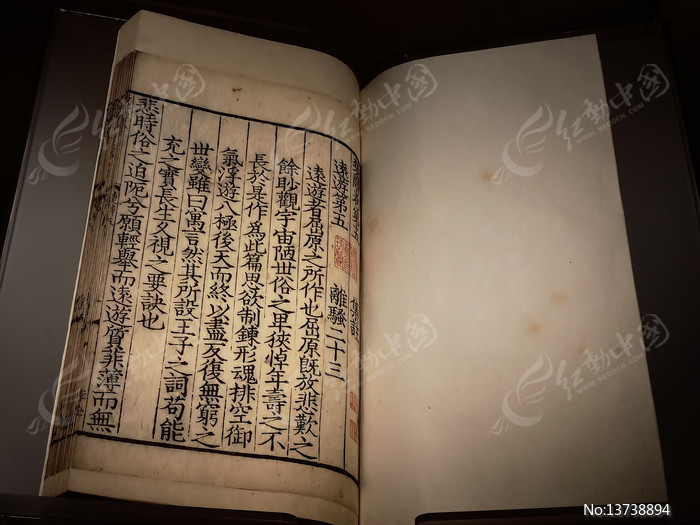 楚辭卷第五 集註
遠遊第五 離騷二十三
遠遊者屈原之所作也屈原既放悲歎之
餘眇觀宇宙陋世俗之卑狹悼年壽之不
長於是作為此篇思欲制鍊形魂排空御
氣浮遊八極後天而終以盡反復無窮之
世變雖曰寓言然其所設王子之詞苟能
充之實長生久視之要訣也
悲時俗之迫阨兮願輕舉而遠遊質菲薄而無
红动中国
WWW.REDOCN.COM
No:13738894